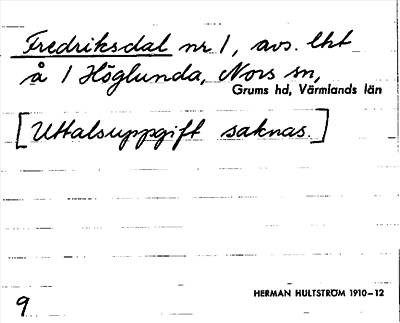 Fredriksdal nr 1, avs. lht
å 1 Höglunda, Nors sn,
Grums hd, Värmlands län
[Uttalsuppgift saknas.]
HERMAN HULTSTRÖM 1910-12
9